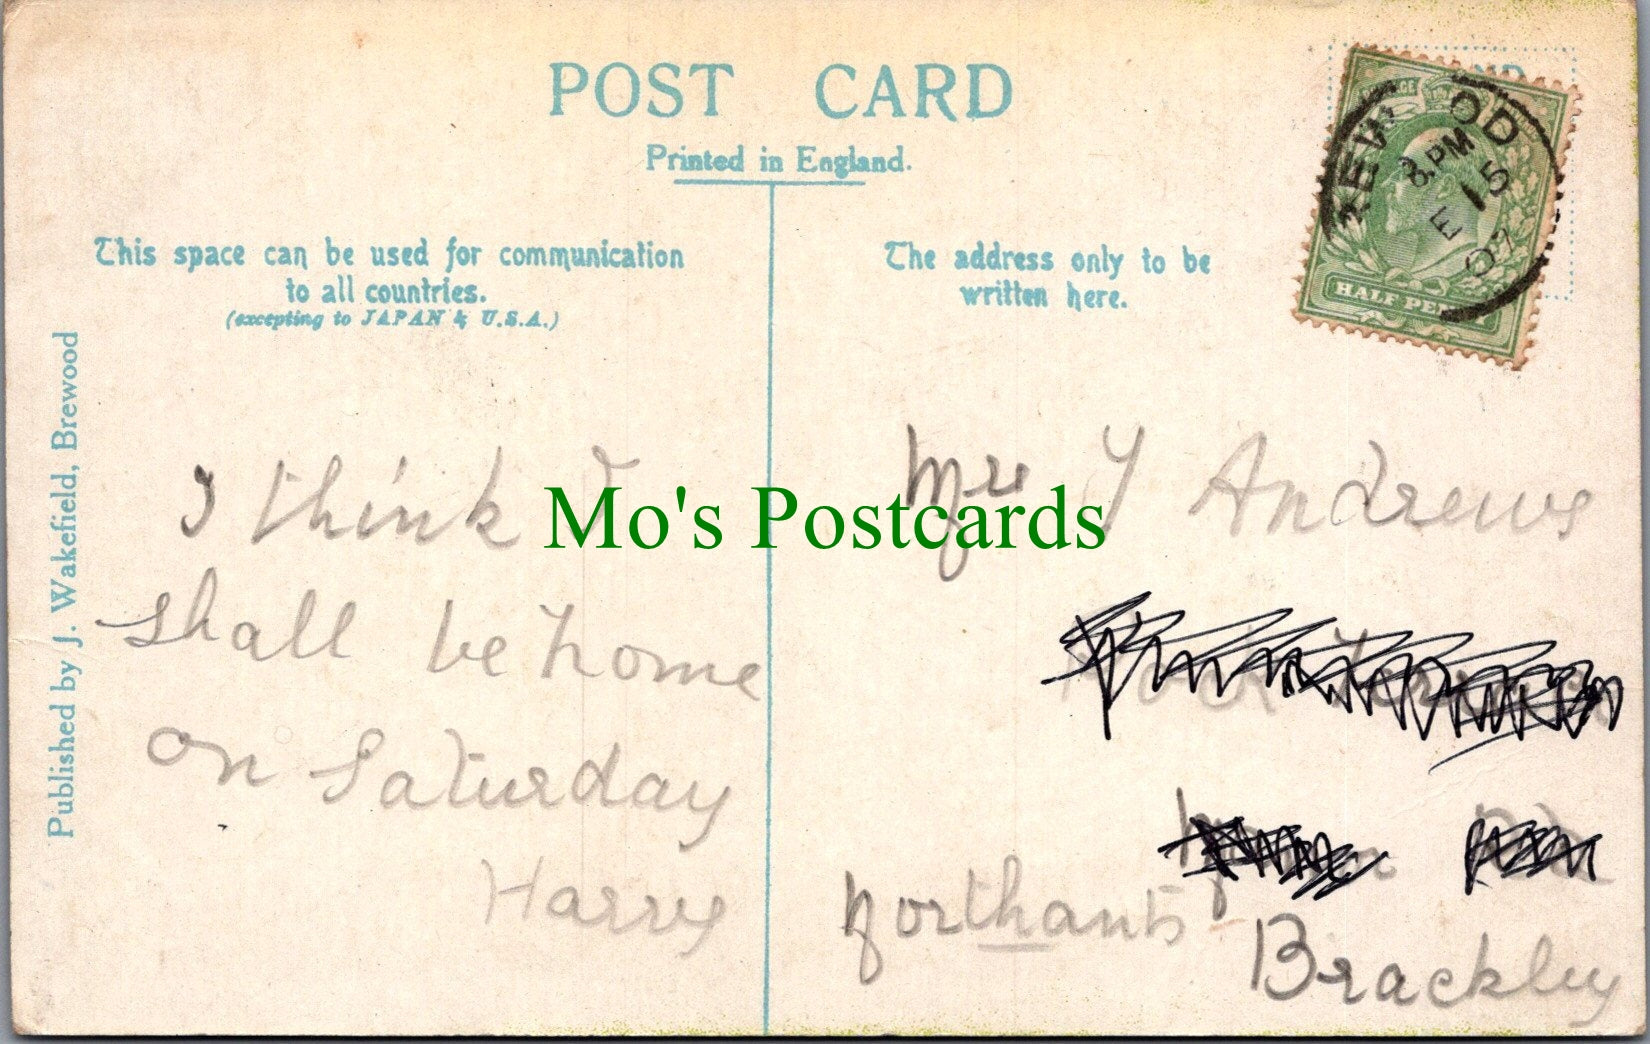 POST CARD
Printed in England.
This space can be used for communication
to all countries.
(excepting to JAPAN & U.S.A.)
The address only to be
written here.
REW OD
8. PM
FE 15
07
HALF PENNY
Published by J. Wakefield, Brewood
I think I
shall be home
on Saturday
Harry
Mo's Postcards
Andrews
Northants
Brackley